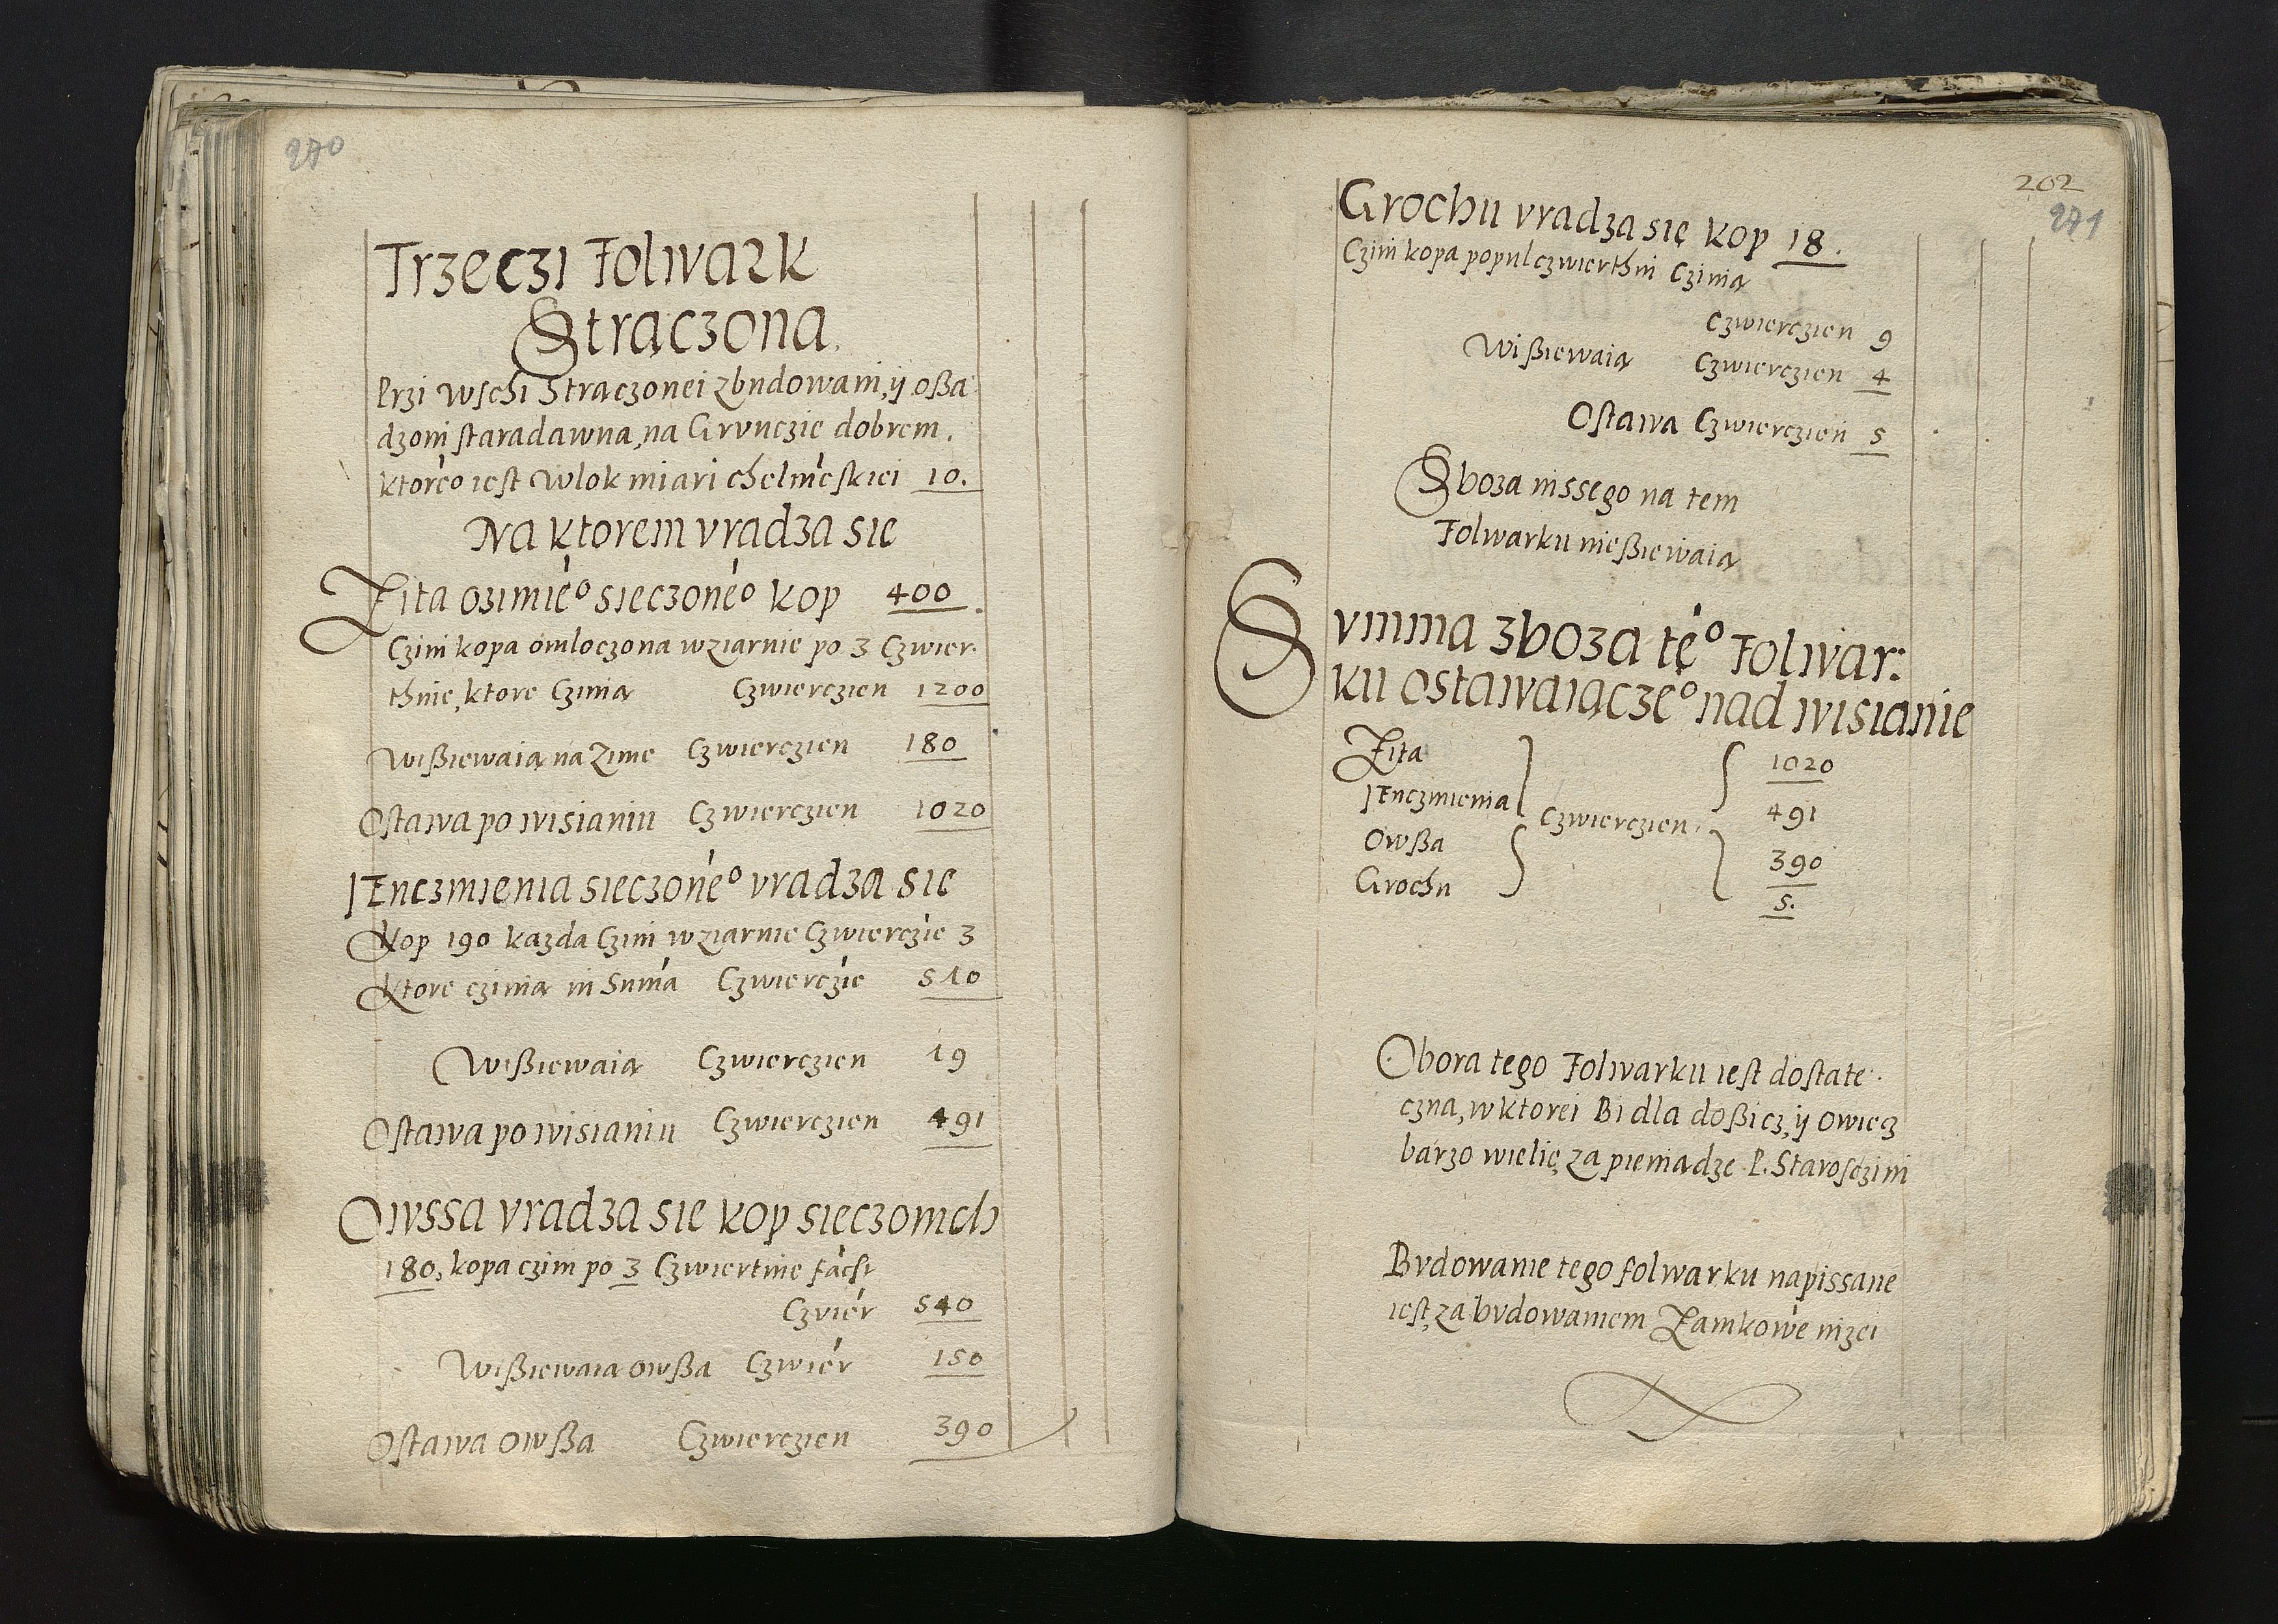 270
Trzeczi Folwark
Strączona.
Przi wschi Strączonei zbudowani, ij oßa
dzoni staradawna, na Grunczie dobrem.
ktoréo iest Wlok miari chelmeskiei 10.
Na ktorem vradza sie
Zita ozimiéo sieczonéo kop 400.
Czini kopa omloczona wziarnie po 3 Czwier.
thnie, ktore Czinią Czwierczien 1200
Wißiewaią na Zime Czwierczien 180
Ostawa po wisianiu Czwierczien 1020
JEnczmienia sieczonéo vradza sie
Kop 190 kazda Czini wziarnie Czwierczie 3
Ktore czinią in Suma Czwierczie 510
Wißiewaią Czwierczien 19
Ostawa po wisianiu Czwierczien 491
Owssa vradza sie kop sieczonich
180, kopa czini po 3 Czwiertnie facst
Czvier 540
Wißiewaią owßa Czwier 150
Ostawa owßa Czwierczien 390
202
271
Grochu vradza się kop 18.
Czini kopa popul czwierthni Czinią
Czwierczien 9
Wißiewaią Czwierczien 4
Ostawa Czwierczien 5
Sboza inssego na tem
Folwarku nießiewaią
Summa zboza téo Folwar:
ku ostawaiączeo nad wisianie
Zita 1020
JEnczmienia 491
Czwierczien.
Owßa 390
Grochu 5.
Obora tego Folwarku iest dostate:
czna, w ktorei Bidla doßicz, ij owiecz
barzo wielię za pieniadze P. Starosczini
Budowanie tego folwarku napissane
iest, za budowaniem Zamkowe nizei